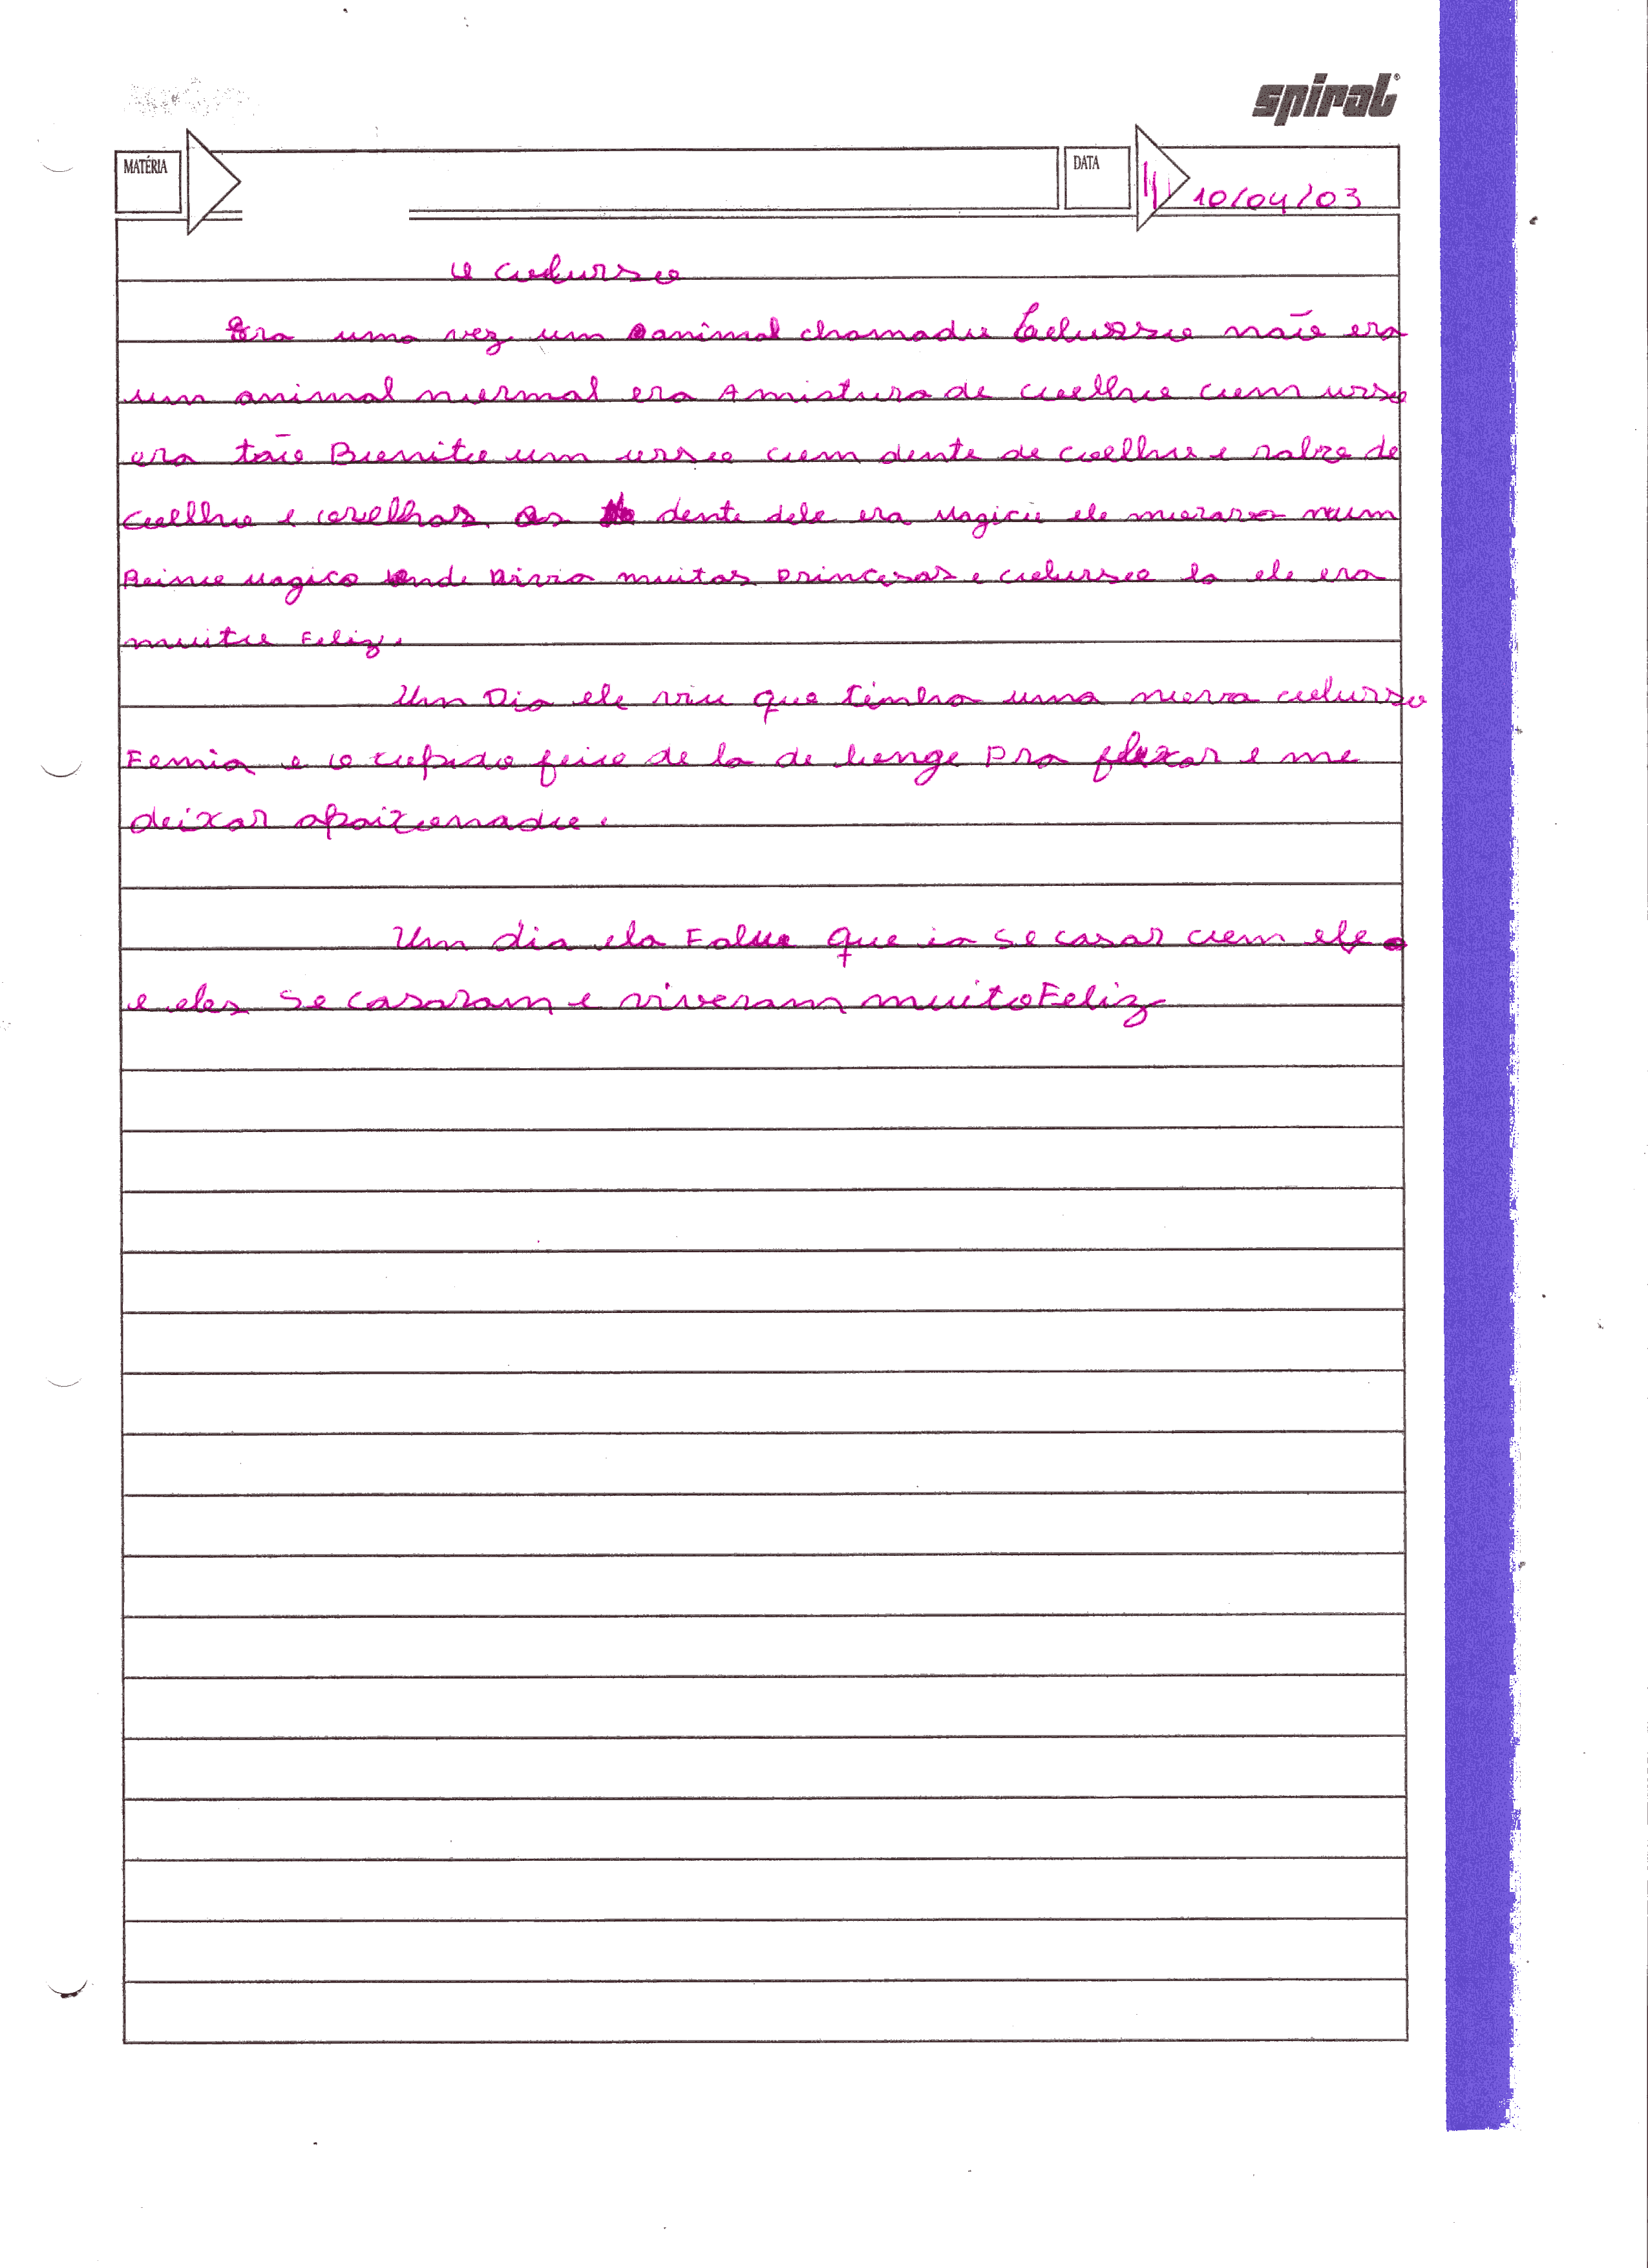 spiral
MATÉRIA
DATA
10/04/03
o coelurso
Era uma vez um animal chamado Coelurso não era
um animal normal era A mistura de coelho com urso
era tão Bonito um urso com dente de coelho e rabo de
coelho e orelhas. os dente dele era magico ele morava num
Reino magico onde vivia muitas princesas e coelurso la ele era
muito Feliz.
Um Dia ele viu que tinha uma nova coelurso
Femia e o cupido feiso de la de longe pra flexar e me
deixar apaixonado.
Um dia ela Falou que ia se casar com ele
e eles se casaram e viveram muito Feliz